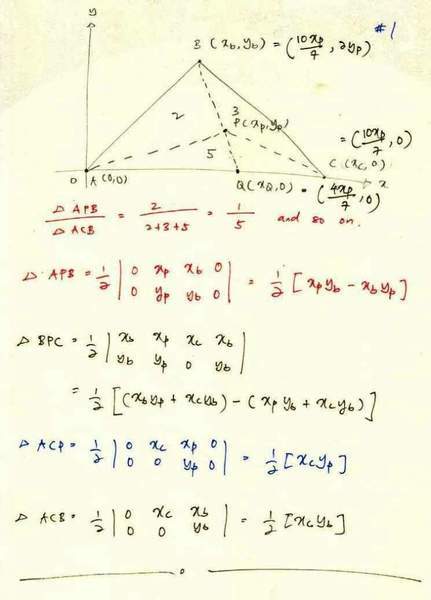 #1
y
B (x_b, y_b) = (10x_p/7, 2y_p)
2
3
P(x_p, y_p)
= (10x_p/7, 0)
5
C (x_c, 0)
0 A (0,0)
Q(x_Q, 0) = (4x_p/7, 0)
x
△ APB / △ ACB = 2 / 2+3+5 = 1/5 and so on.
△ APB = 1/2 | 0 x_p x_b 0 | = 1/2 [x_p y_b - x_b y_p]
0 y_p y_b 0
△ BPC = 1/2 | x_b x_p x_c x_b |
y_b y_p 0 y_b
= 1/2 [(x_b y_p + x_c y_b) - (x_p y_b + x_c y_p)]
△ ACP = 1/2 | 0 x_c x_p 0 | = 1/2 [x_c y_p]
0 0 y_p 0
△ ACB = 1/2 | 0 x_c x_b | = 1/2 [x_c y_b]
0 0 y_b